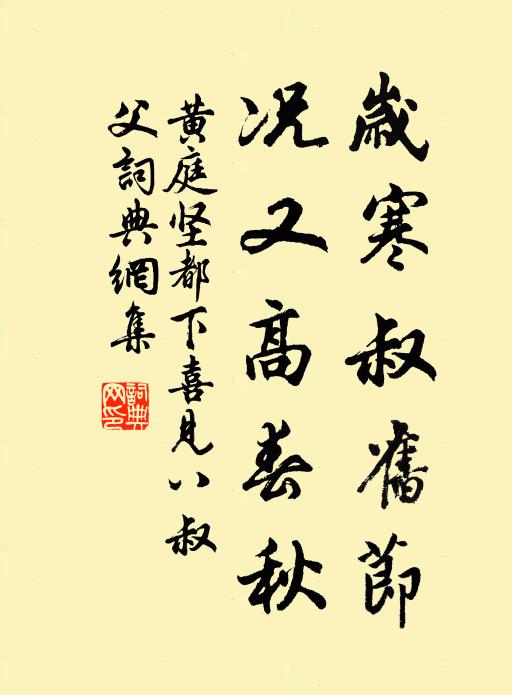 歲寒叔舊節
況又高春秋
黃庭坚都下喜見八叔
父詞典網集
詞典网印